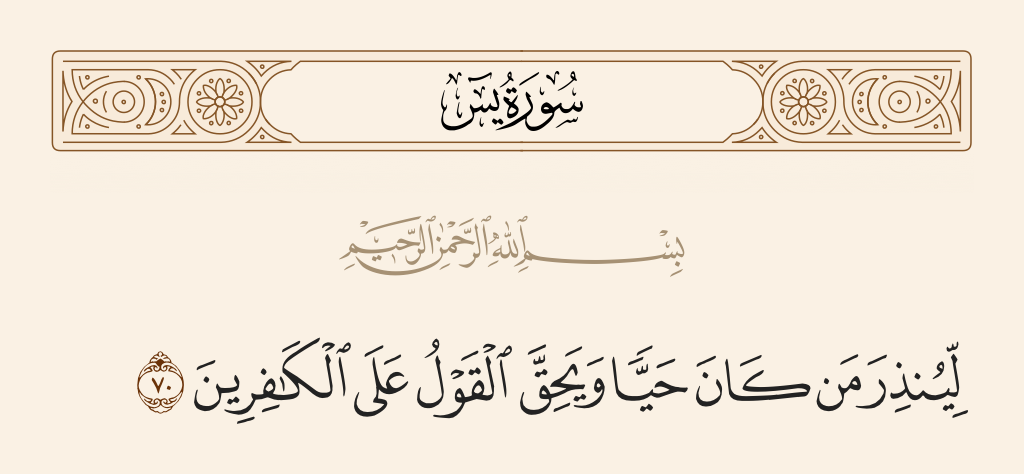 سُورَةُ يسٓ
بِسْمِ ٱللَّهِ ٱلرَّحْمَٰنِ ٱلرَّحِيمِ
لِّيُنذِرَ مَن كَانَ حَيًّا وَيَحِقَّ ٱلْقَوْلُ عَلَى ٱلْكَٰفِرِينَ ٧٠